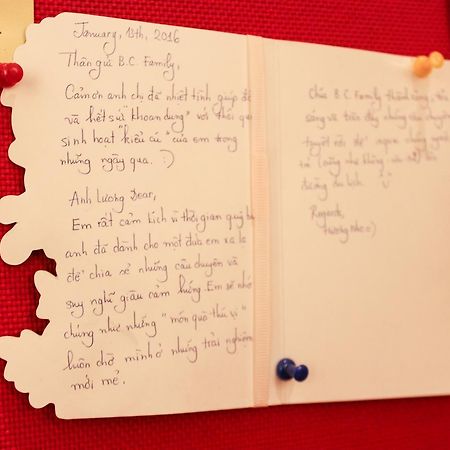 January, 13th, 2016
Thân gửi B.C. Family,
Cảm ơn anh chị đã nhiệt tình giúp đỡ
và hết sức "khoan dung" với thói quen
sinh hoạt "kiểu cú" của em trong
những ngày qua. :)
Anh Lương Dear,
Em rất cảm kích vì thời gian quý báu
anh đã dành cho một đứa em xa lạ
để chia sẻ những câu chuyện và
suy nghĩ giàu cảm hứng. Em sẽ nhớ
chúng như những "món quà thú vị"
luôn chờ mình ở những trải nghiệm
mới mẻ.
Chúc B.C. Family thành công,
sáng và tràn đầy những câu chuyện
tuyệt vời để người
đường du lịch.
Regards,